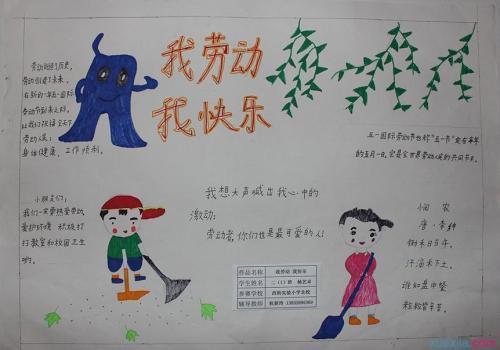 我劳动
我快乐
劳动创造了历史,
劳动创造了未来。
在新的一年五一国际
劳动节到来之际,
让我们祝福全天下
劳动人民:
身体健康、工作顺利。
五一国际劳动节也称"五一节"定在每年
的五月一日。它是全世界劳动人民的共同节日。
小朋友们:
我们一定要热爱劳动,
爱护环境 积极打
扫教室和校园卫生
哟。
我想大声喊出我心中的
激动:
劳动者,你们也是最可爱的人!
悯 农
唐·李绅
锄禾日当午,
汗滴禾下土。
谁知盘中餐
粒粒皆辛苦。
作品名称 我劳动 我快乐
学生姓名 二(1)班
参赛学校 实验小学北校
辅导教师